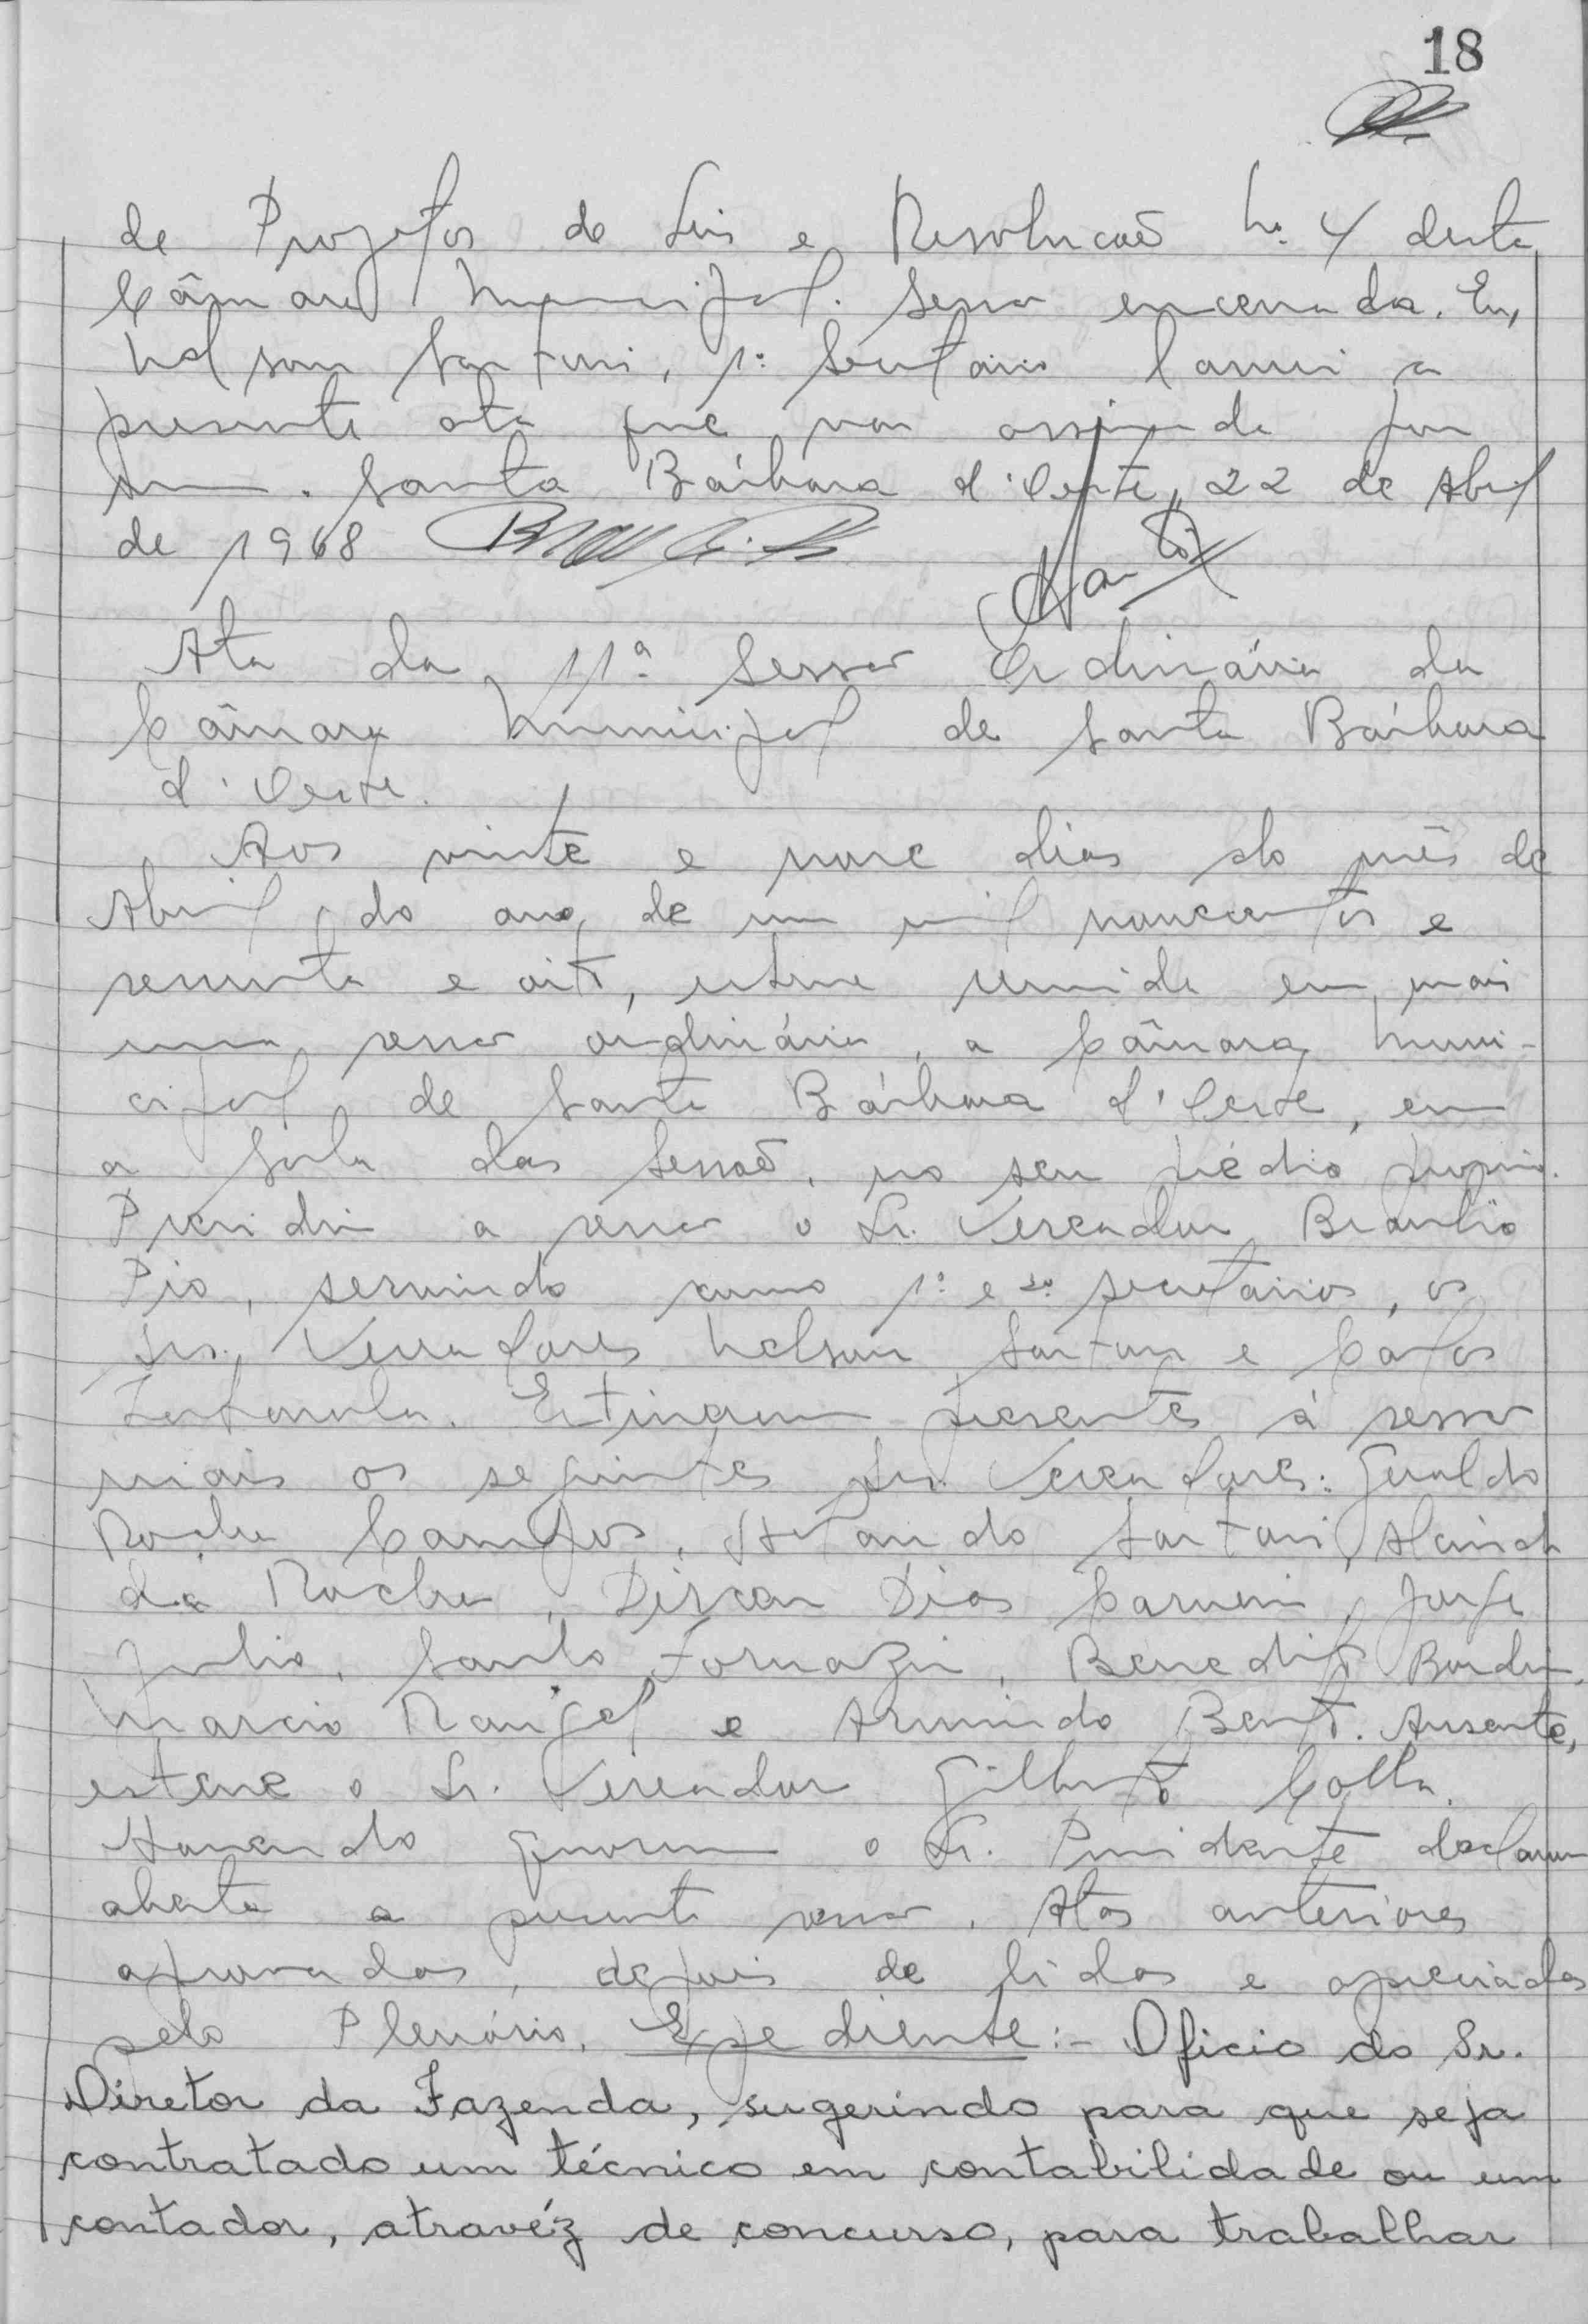 18
de Projetos de Leis e Resolucaõ nº 4 desta
Câmara Municipal. Sessão encerrada. Eu,
Nelson Sartori, 1º Secretário lavrei a
presente ata que vai assinada por
mim. Santa Bárbara d'Oeste, 22 de Abril
de 1968
Ata da 11ª Sessão Ordinária da
Câmara Municipal de Santa Bárbara
d'Oeste.
Aos vinte e nove dias do mês de
Abril, do ano, de um mil novecentos e
sessenta e oito, esteve reunida em mais
uma sessão ordinária, a Câmara Muni-
cipal de Santa Bárbara d'Oeste, em
a Sala das Sessoẽ, no seu prédio próprio.
Presidiu a sessão o Sr. Vereador Braulio
Pio, servindo como 1º e 2º secretários, os
Srs. Vereadores Nelson Sartori e Carlos
Estiveram presentes à sessão
mais os seguintes Srs. Vereadores: Geraldo
Rocha Campos, Sartori, Alcindo
da Rocha, Dirceu Dias Carneiro, Jorge
Julio, Santo Fornazin, Benedito Bordin,
Marcio Rangel e Armindo Bento. Ausente,
esteve o Sr. Vereador Gilberto Colla.
Havendo quorum o Sr. Presidente declarou
aberta a presente sessão. Atas anteriores
aprovadas, depois de lidas e apreciadas
pelo Plenário. Expediente:- Oficio do Sr.
Diretor da Fazenda, sugerindo para que seja
contratado um técnico em contabilidade ou um
contador, atravéz de concurso, para trabalhar